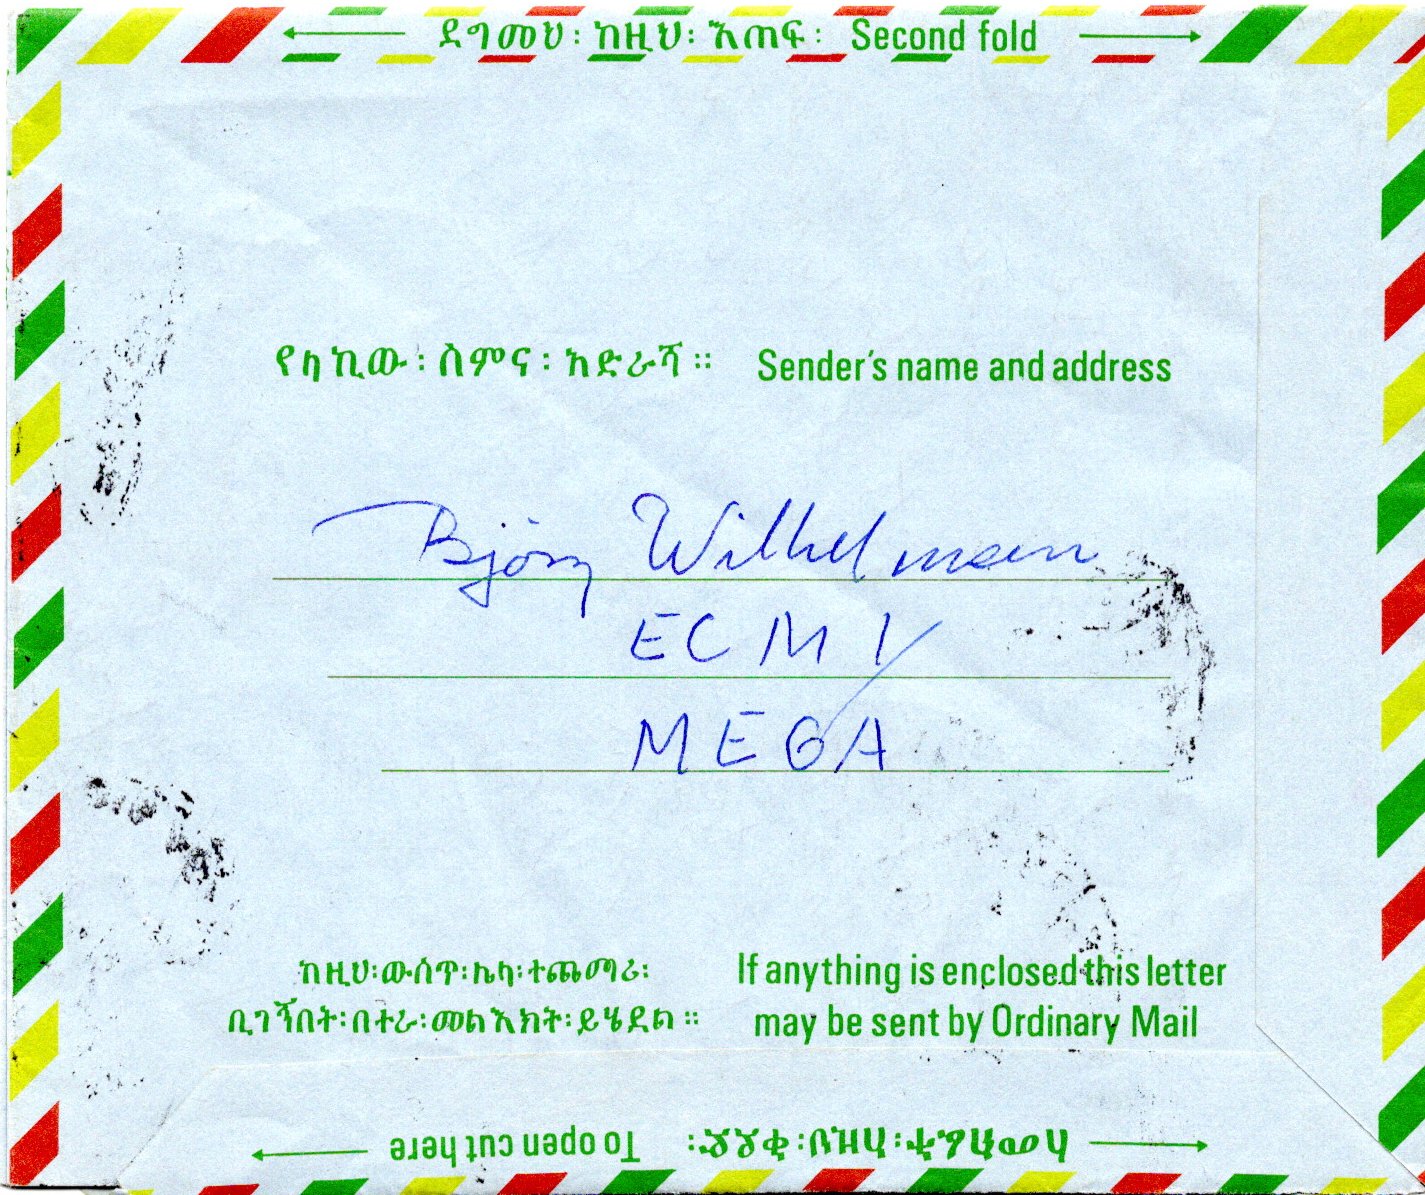 ደግመህ፡ ከዚህ፡ እጠፍ፡ Second fold
የላኪው፡ ስምና፡ አድራሻ። Sender's name and address
Björn Wilhelmsen
ECMY
MEGA
ከዚህ፡ውስጥ፡ሌላ፡ተጨማሪ፡ If anything is enclosed this letter
ቢገኝበት፡በተራ፡መልእክት፡ይሄዳል። may be sent by Ordinary Mail
To open cut here